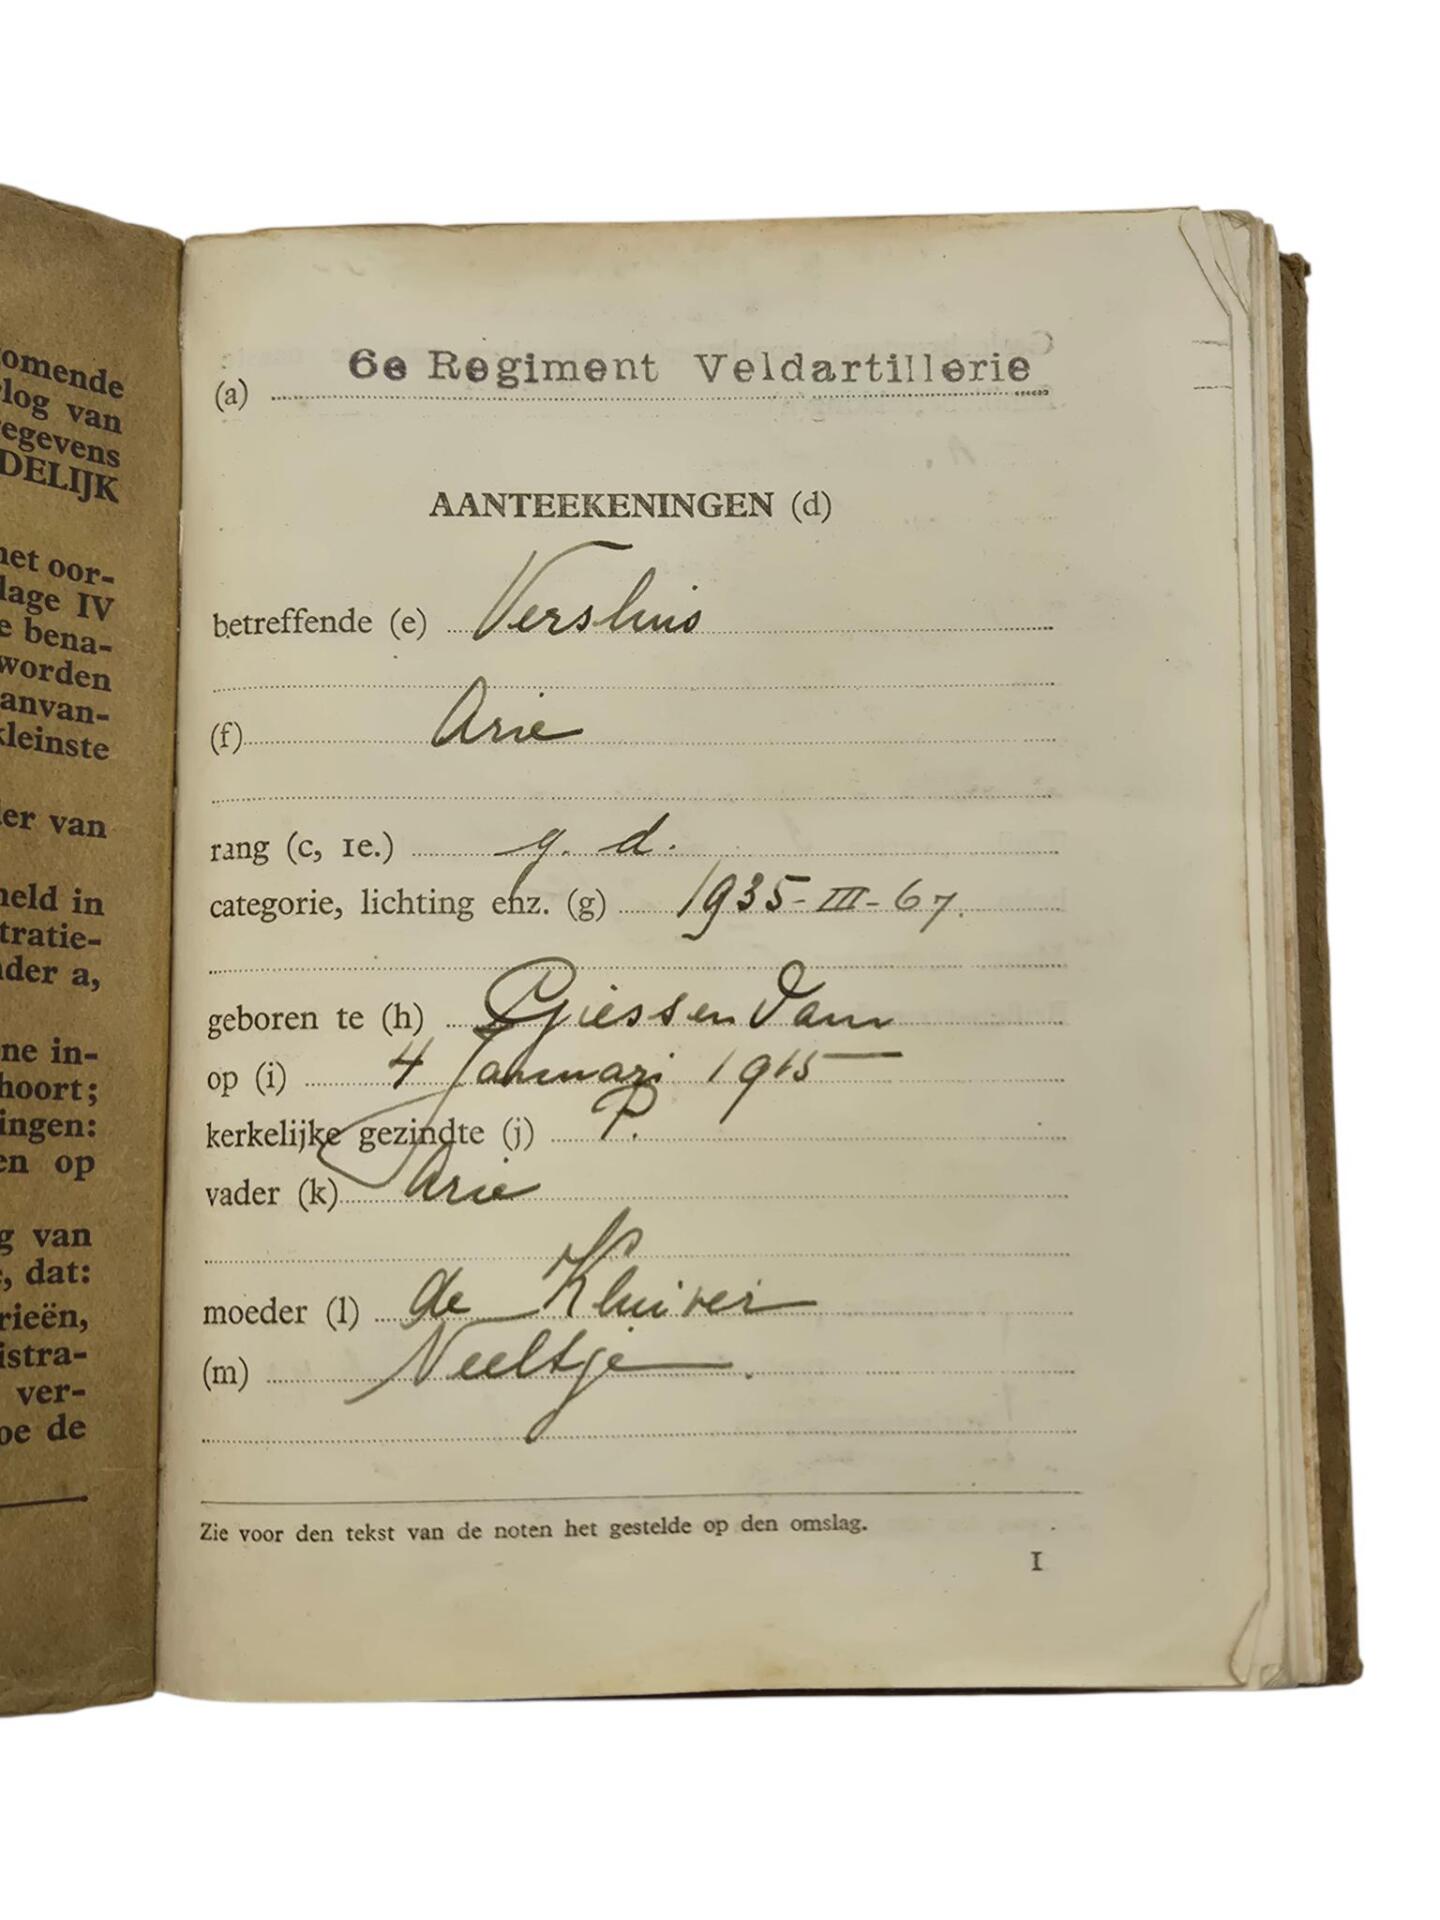 omende
log van
egevens
DELIJK
het oor-
lage IV
e bena-
worden
anvan-
kleinste
er van
meld in
tratie-
der a,
ne in-
hoort;
ingen:
en op
g van
, dat:
rieën,
istra-
ver-
oe de
6e Regiment Veldartillerie
(a)
AANTEEKENINGEN (d)
betreffende (e) Versluis
(f) Arie
rang (c, 1e.) g. d.
categorie, lichting enz. (g) 1935-III-67.
geboren te (h) Giessendam
op (i) 4 Januari 1915
kerkelijke gezindte (j) P.
vader (k) Arie
moeder (l) de Kluiver
(m) Neeltje.
Zie voor den tekst van de noten het gestelde op den omslag.
1